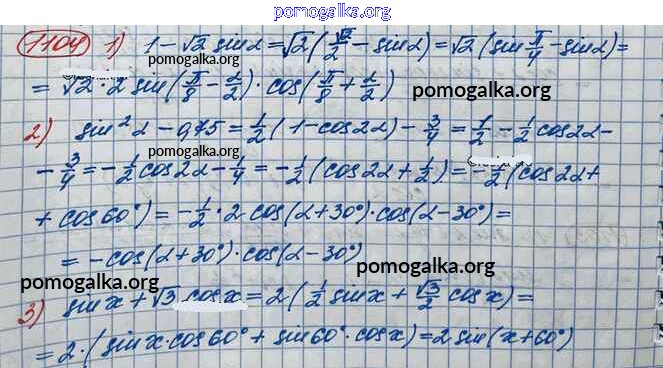 pomogalka.org
1104 1) 1 - √2 sinα = √2 (√2/2 - sinα) = √2 (sin π/4 - sinα) =
= √2 · 2 sin(π/8 - α/2) · cos(π/8 + α/2)
pomogalka.org
2) sin²α - 0,75 = 1/2 (1 - cos2α) - 3/4 = 1/2 - 1/2 cos2α -
pomogalka.org
- 3/4 = - 1/2 cos2α - 1/4 = - 1/2 (cos2α + 1/2) = - 1/2 (cos2α +
+ cos60°) = - 1/2 · 2 cos(α+30°) · cos(α-30°) =
= - cos(α+30°) · cos(α-30°)
pomogalka.org
pomogalka.org
3) sinx + √3 cosx = 2 (1/2 sinx + √3/2 cosx) =
= 2 · (sinx · cos60° + sin60° · cosx) = 2 sin(x+60°)
pomogalka.org